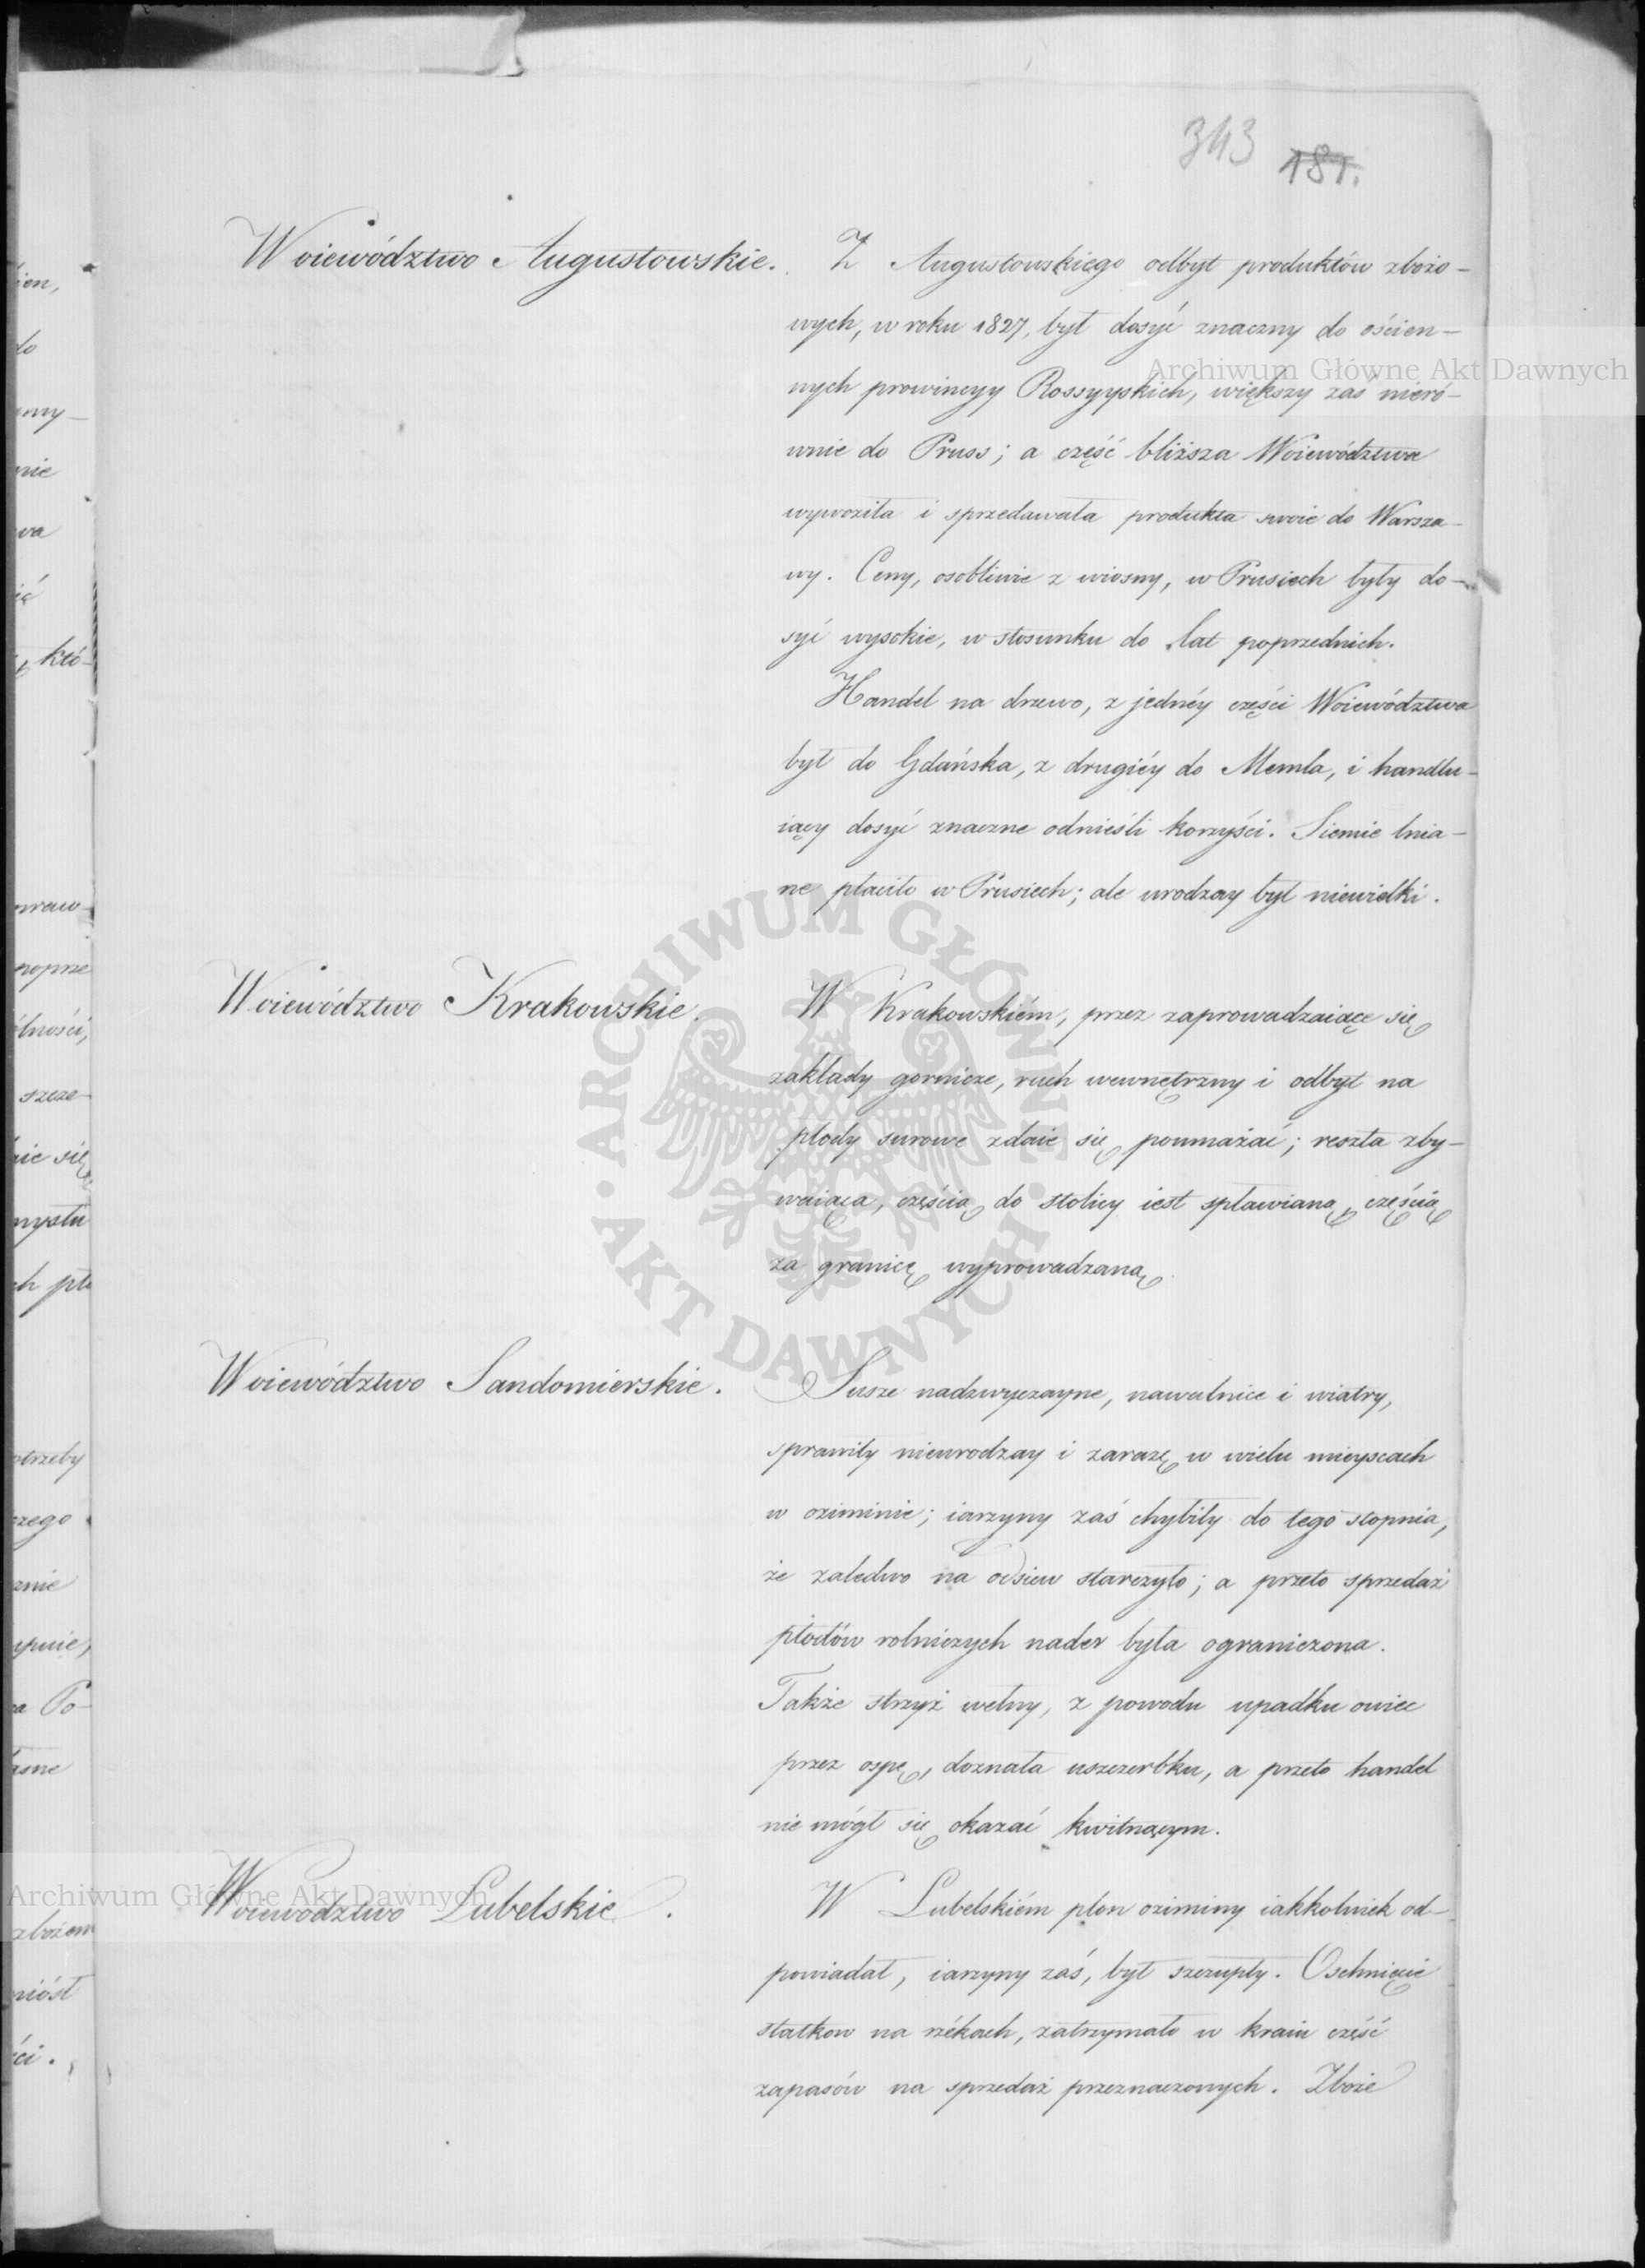 343 181.
Woiewództwo Augustowskie.
Z Augustowskiego odbyt produktów zbożo-
wych, w roku 1827, był dosyć znaczny do ościen-
nych prowincyy Rossyyskich, większy zaś nieró-
wnie do Pruss; a część bliższa Woiewództwa
wywoziła i sprzedawała produkta swoie do Warsza-
wy. Ceny, osobliwie z wiosny, w Prusiech były do-
syć wysokie, w stosunku do lat poprzednich.
Handel na drzewo, z jednéy części Woiewództwa
był do Gdańska, z drugiéy do Memla, i handlu-
iący dosyć znaczne odnieśli korzyści. Siemie lnia-
ne płaciło w Prusiech; ale urodzay był niewielki.
Woiewództwo Krakowskie.
W Krakowskiém, przez zaprowadzaiące się
zakłady gornicze, ruch wewnętrzny i odbyt na
płody surowe zdaie się pomnażać; reszta zby-
waiąca, częścią do stolicy iest spławianą, częścią
za granicę wyprowadzaną.
Woiewództwo Sandomierskie.
Susze nadzwyczayne, nawalnice i wiatry,
sprawiły nieurodzay i zarazę w wielu mieyscach
w oziminie; iarzyny zaś chybiły do tego stopnia,
że zaledwo na odsiew starczyło; a przeto sprzedaż
płodów rolniczych nader była ograniczona.
Także strzyż wełny, z powodu upadku owiec
przez ospę, doznała uszczerbku, a przeto handel
nie mógł się okazać kwitnącym.
Woiewództwo Lubelskie.
W Lubelskiém plon oziminy iakkolwiek od-
powiadał, iarzyny zaś, był szczupły. Oschnięcie
statkow na rzékach, zatrzymało w kraiu część
zapasów na sprzedaż przeznaczonych. Zboże
Archiwum Główne Akt Dawnych
ARCHIWUM GŁÓWNE
AKT DAWNYCH
Archiwum Główne Akt Dawnych